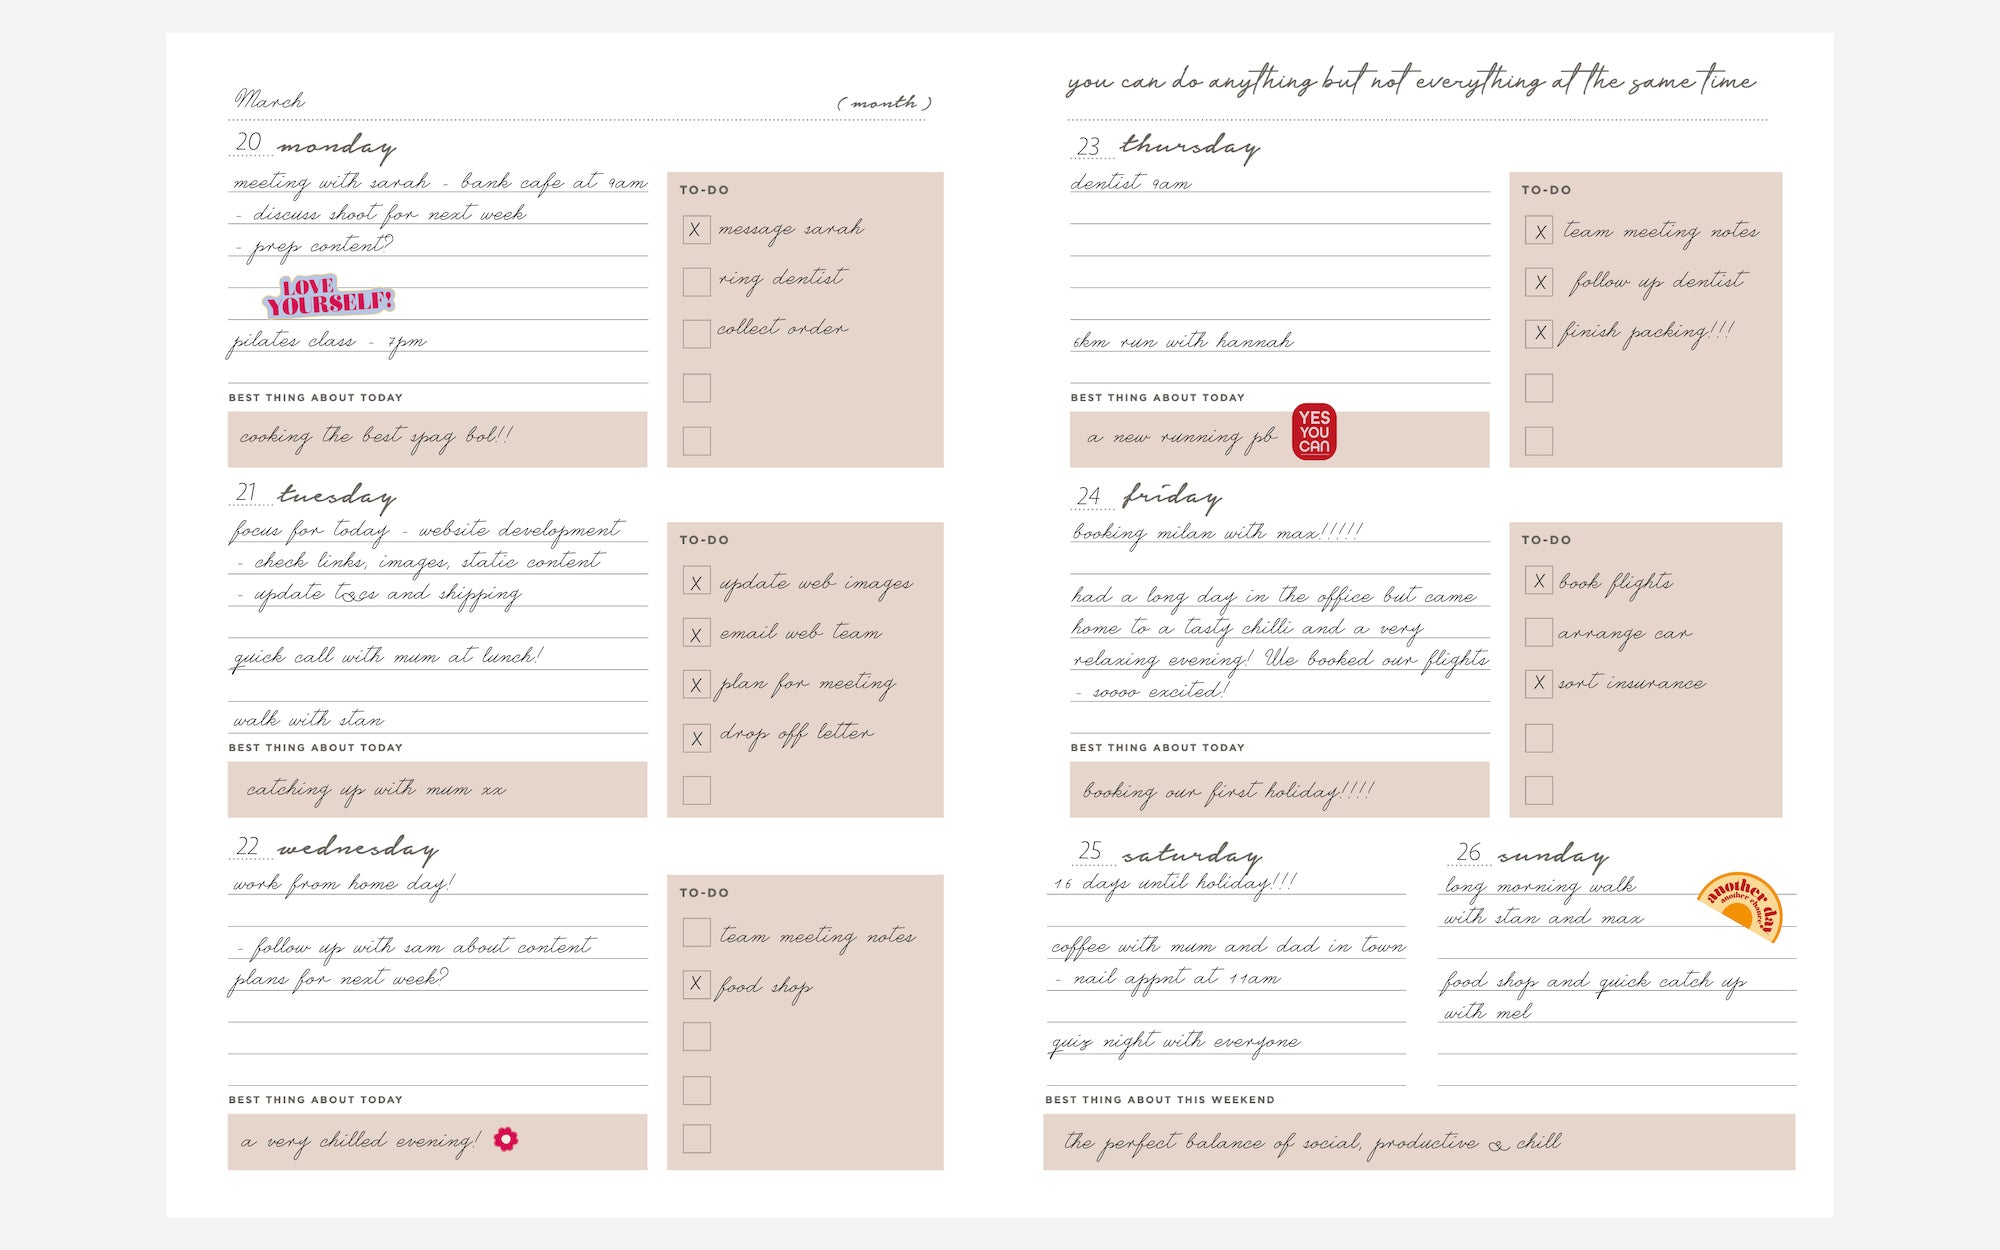 March
( month )
20 monday
meeting with sarah - bank cafe at 9am
- discuss shoot for next week
- prep content?
LOVE
YOURSELF!
pilates class - 7pm
TO-DO
X message sarah
ring dentist
collect order
BEST THING ABOUT TODAY
cooking the best spag bol!!
21 tuesday
focus for today - website development
- check links, images, static content
- update t&cs and shipping
quick call with mum at lunch!
walk with stan
TO-DO
X update web images
X email web team
X plan for meeting
X drop off letter
BEST THING ABOUT TODAY
catching up with mum xx
22 wednesday
work from home day!
- follow up with sam about content
plans for next week?
TO-DO
team meeting notes
X food shop
BEST THING ABOUT TODAY
a very chilled evening!
you can do anything but not everything at the same time
23 thursday
dentist 9am
6km run with hannah
TO-DO
X team meeting notes
X follow up dentist
X finish packing!!!
BEST THING ABOUT TODAY
a new running pb
YES
YOU
CAN
24 friday
booking milan with max!!!!!
had a long day in the office but came
home to a tasty chilli and a very
relaxing evening! We booked our flights
- soooo excited!
TO-DO
X book flights
arrange car
X sort insurance
BEST THING ABOUT TODAY
booking our first holiday!!!!
25 saturday
16 days until holiday!!!
coffee with mum and dad in town
- nail appnt at 11am
quiz night with everyone
26 sunday
long morning walk
with stan and max
another day
another chance
food shop and quick catch up
with mel
BEST THING ABOUT THIS WEEKEND
the perfect balance of social, productive & chill